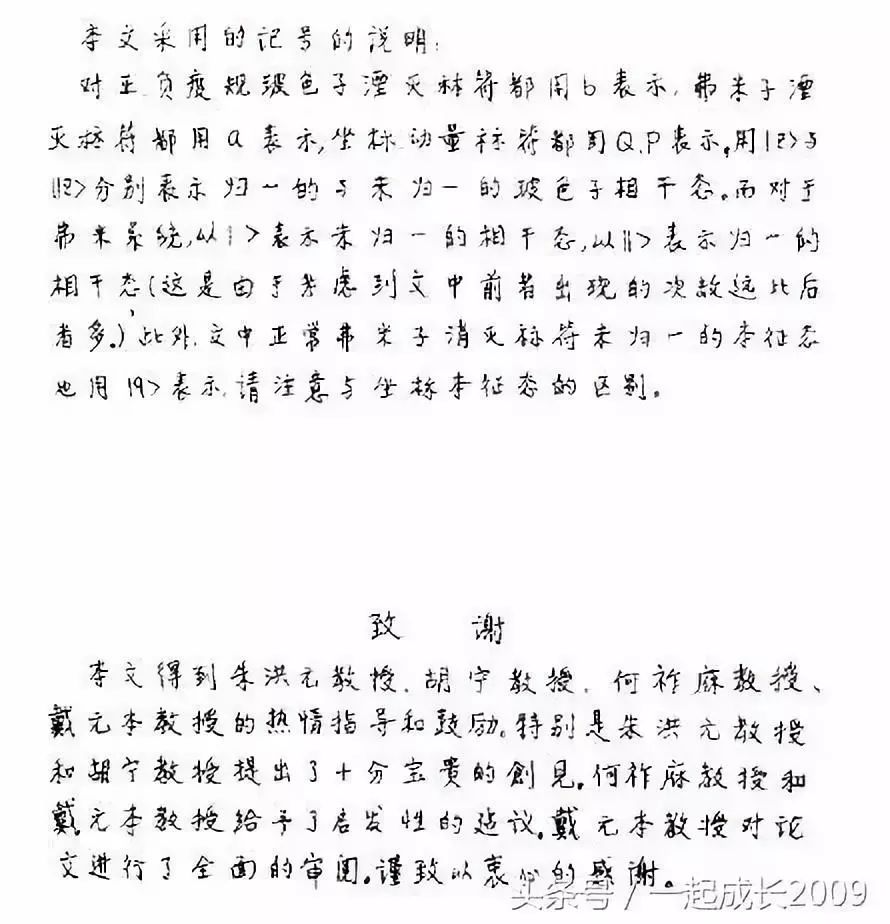 本文采用的记号的说明:
对正负度规玻色子湮灭标符都用b表示,弗米子湮
灭标符都用a表示,坐标动量标符都用Q.P表示。用|Z>与
||Z>分别表示归一的与未归一的玻色子相干态。而对于
弗米系统,以|>表示未归一的相干态,以||>表示归一的
相干态(这是由于考虑到文中前者出现的次数远比后
者多。)此外,文中正常弗米子消灭标符未归一的本征态
也用|9>表示,请注意与坐标本征态的区别。
致 谢
本文得到朱洪元教授、胡宁教授、何祚庥教授、
戴元本教授的热情指导和鼓励。特别是朱洪元教授
和胡宁教授提出了十分宝贵的创见。何祚庥教授和
戴元本教授给予了启发性的建议。戴元本教授对论
文进行了全面的审阅。谨致以衷心的感谢。
头条号/一起成长2009